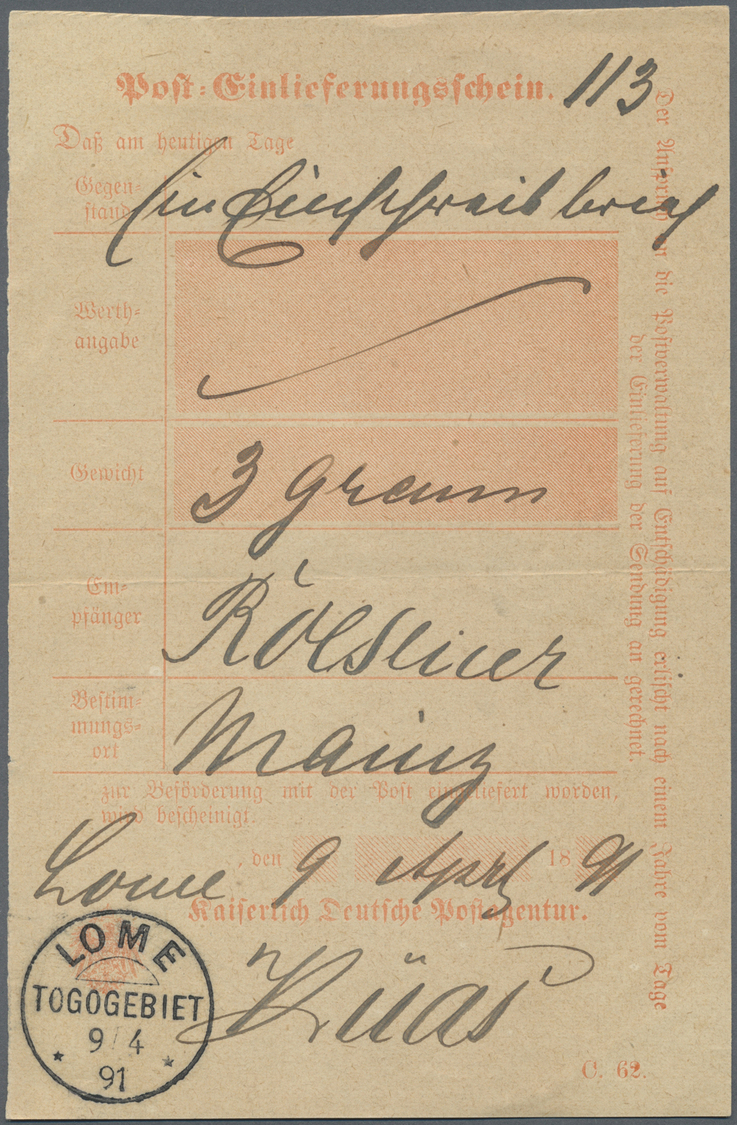 Post-Einlieferungsschein. 113
Daß am heutigen Tage
Gegen-
stand
Ein Einschreibbrief
Werth-
angabe
Gewicht
3 Gramm
Em-
pfänger
Bestim-
mungs-
ort
Mainz
zur Beförderung mit der Post eingeliefert worden,
wird bescheinigt.
Lome, den 9 April 1891
Kaiserlich Deutsche Postagentur.
Küas
LOME
TOGOGEBIET
9/4
* 91 *
C. 62.
Der Anspruch an die Postverwaltung auf Entschädigung erlischt nach einem Jahre vom Tage
der Einlieferung der Sendung an gerechnet.